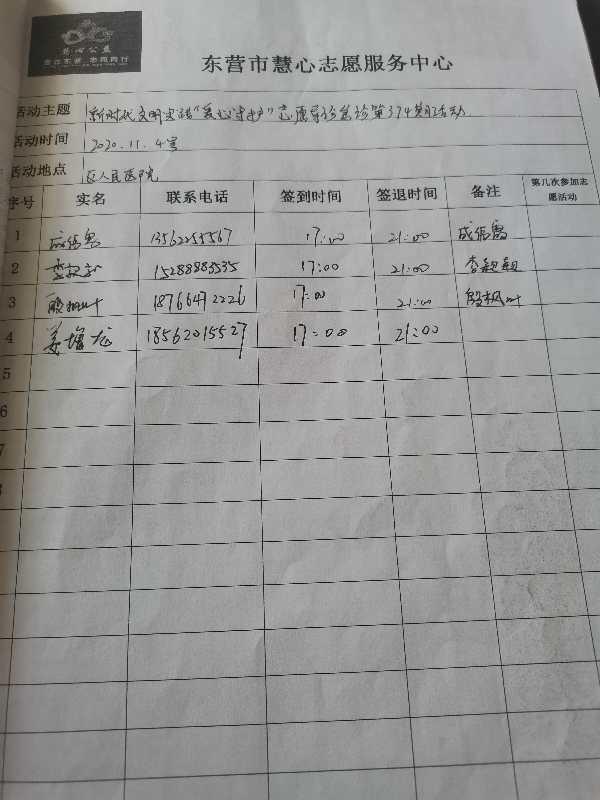 慧心公益
东营市慧心志愿服务中心
活动主题 新时代文明实践"爱心守护"志愿导诊急诊第374期活动
活动时间 2020.11.4号
活动地点 区人民医院
序号 实名 联系电话 签到时间 签退时间 备注 第几次参加志愿活动
1 17:00 21:00
2 15288883535 17:00 21:00 李超超
3 殷枫叶 18766472226 17:00 21:00 殷枫叶
4 姜增龙 18562015527 17:00 21:00
5
6
7